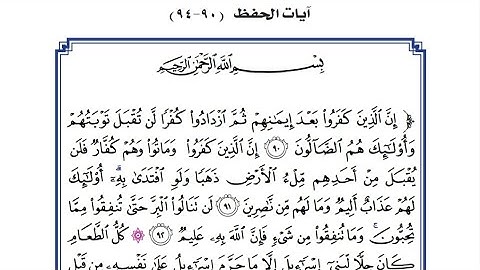 آيات الحفظ (٩٠-٩٤)
بِسْمِ اللَّهِ الرَّحْمَٰنِ الرَّحِيمِ
﴿ إِنَّ الَّذِينَ كَفَرُوا بَعْدَ إِيمَٰنِهِمْ ثُمَّ ازْدَادُوا كُفْرًا لَّن تُقْبَلَ تَوْبَتُهُمْ
وَأُولَٰٓئِكَ هُمُ الضَّآلُّونَ ٩٠ إِنَّ الَّذِينَ كَفَرُوا وَمَاتُوا وَهُمْ كُفَّارٌ فَلَن
يُقْبَلَ مِنْ أَحَدِهِم مِّلْءُ الْأَرْضِ ذَهَبًا وَلَوِ افْتَدَىٰ بِهِۦٓ أُولَٰٓئِكَ
لَهُمْ عَذَابٌ أَلِيمٌ وَمَا لَهُم مِّن نَّٰصِرِينَ ٩١ لَن تَنَالُوا الْبِرَّ حَتَّىٰ تُنفِقُوا مِمَّا
تُحِبُّونَ ۚ وَمَا تُنفِقُوا مِن شَىْءٍ فَإِنَّ اللَّهَ بِهِۦ عَلِيمٌ ٩٢ ۞ كُلُّ الطَّعَامِ
كَانَ حِلًّا لِّبَنِىٓ إِسْرَٰٓءِيلَ إِلَّا مَا حَرَّمَ إِسْرَٰٓءِيلُ عَلَىٰ نَفْسِهِۦ مِن قَبْلِ